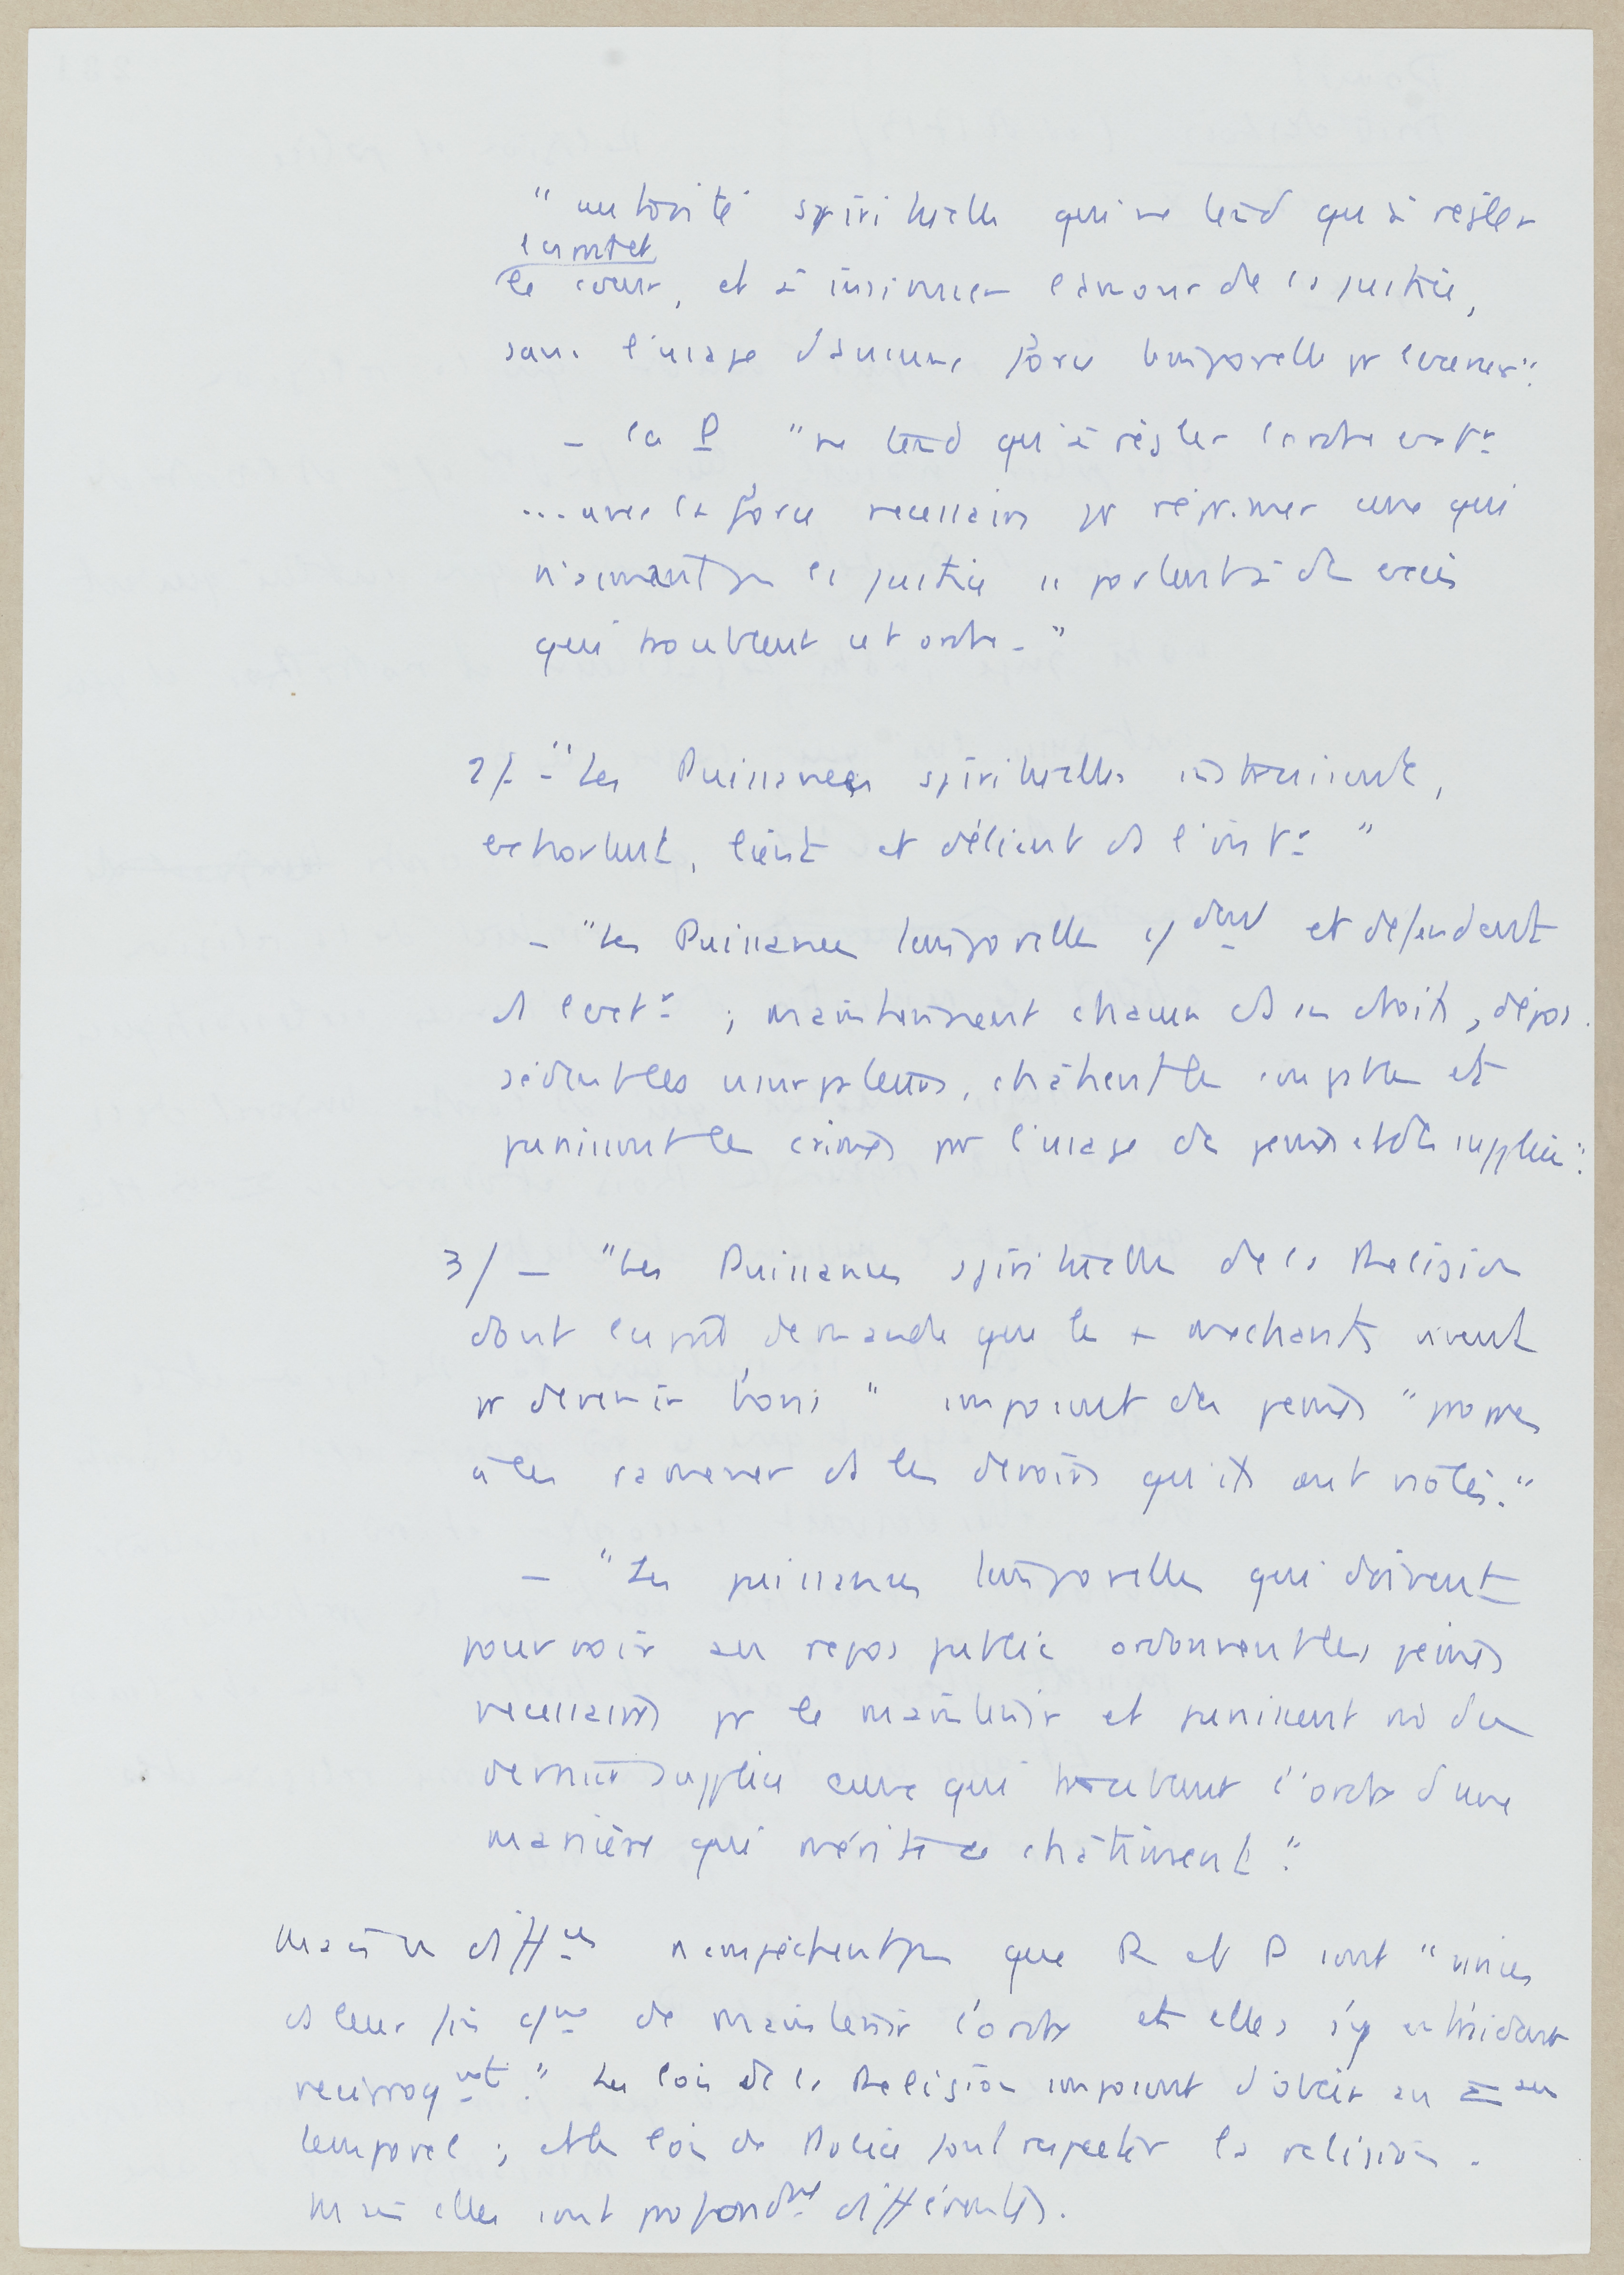 "autorité spirituelle qui ne tend qu'à régler
l'esprit et
le cœur, et à insinuer l'amour de la justice,
sans l'usage d'aucune force temporelle pr l'exter".
- la P "ne tend qu'à régler l'ordre extr
... avec la force necessaire pr réprimer ceux qui
n'aimant pas la justice se portent à des excès
qui troublent cet ordre."
2/ - "Les Puissances spirituelles instruisent,
exhortent, lient et délient ds l'intr"
- "Les Puissances temporelles cdent et défendent
ds l'extr ; maintiennent chacun ds ses droits, dépos
sèdent les usurpateurs, châtient les coupables et
punissent les crimes pr l'usage des peines et des supplices".
3/ - "Les Puissances spirituelles de la Religion
dont l'esprit demande que les + mechants vivent
pr devenir bons" imposent des peines "propres
à les ramener ds les devoirs qu'ils ont violés."
- "Les puissances temporelles qui doivent
pourvoir au repos public ordonnent les peines
necessaires pr le maintenir et punissent du
dernier supplice ceux qui troublent l'ordre d'une
manière qui mérite ce châtiment".
Mais ces diffces n'empêchent pas que R et P sont "unies
ds leur fin cne de maintenir l'ordre et elles s'y entraident
reciproqmt." Les lois de la Religion imposent d'obéir au
temporel ; et les lois de Police font respecter la religion.
Mais elles sont profondmt différentes.